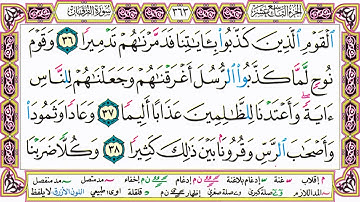 الجزء التاسع عشر ٣٦٣ سورة الفرقان
ٱلۡقَوۡمِ ٱلَّذِينَ كَذَّبُواْ بِـَٔايَٰتِنَا فَدَمَّرۡنَٰهُمۡ تَدۡمِيرٗا ٣٦ وَقَوۡمَ
نُوحٖ لَّمَّا كَذَّبُواْ ٱلرُّسُلَ أَغۡرَقۡنَٰهُمۡ وَجَعَلۡنَٰهُمۡ لِلنَّاسِ
ءَايَةٗۖ وَأَعۡتَدۡنَا لِلظَّٰلِمِينَ عَذَابًا أَلِيمٗا ٣٧ وَعَادٗا وَثَمُودَاْ
وَأَصۡحَٰبَ ٱلرَّسِّ وَقُرُونَۢا بَيۡنَ ذَٰلِكَ كَثِيرٗا ٣٨ وَكُلّٗا ضَرَبۡنَا